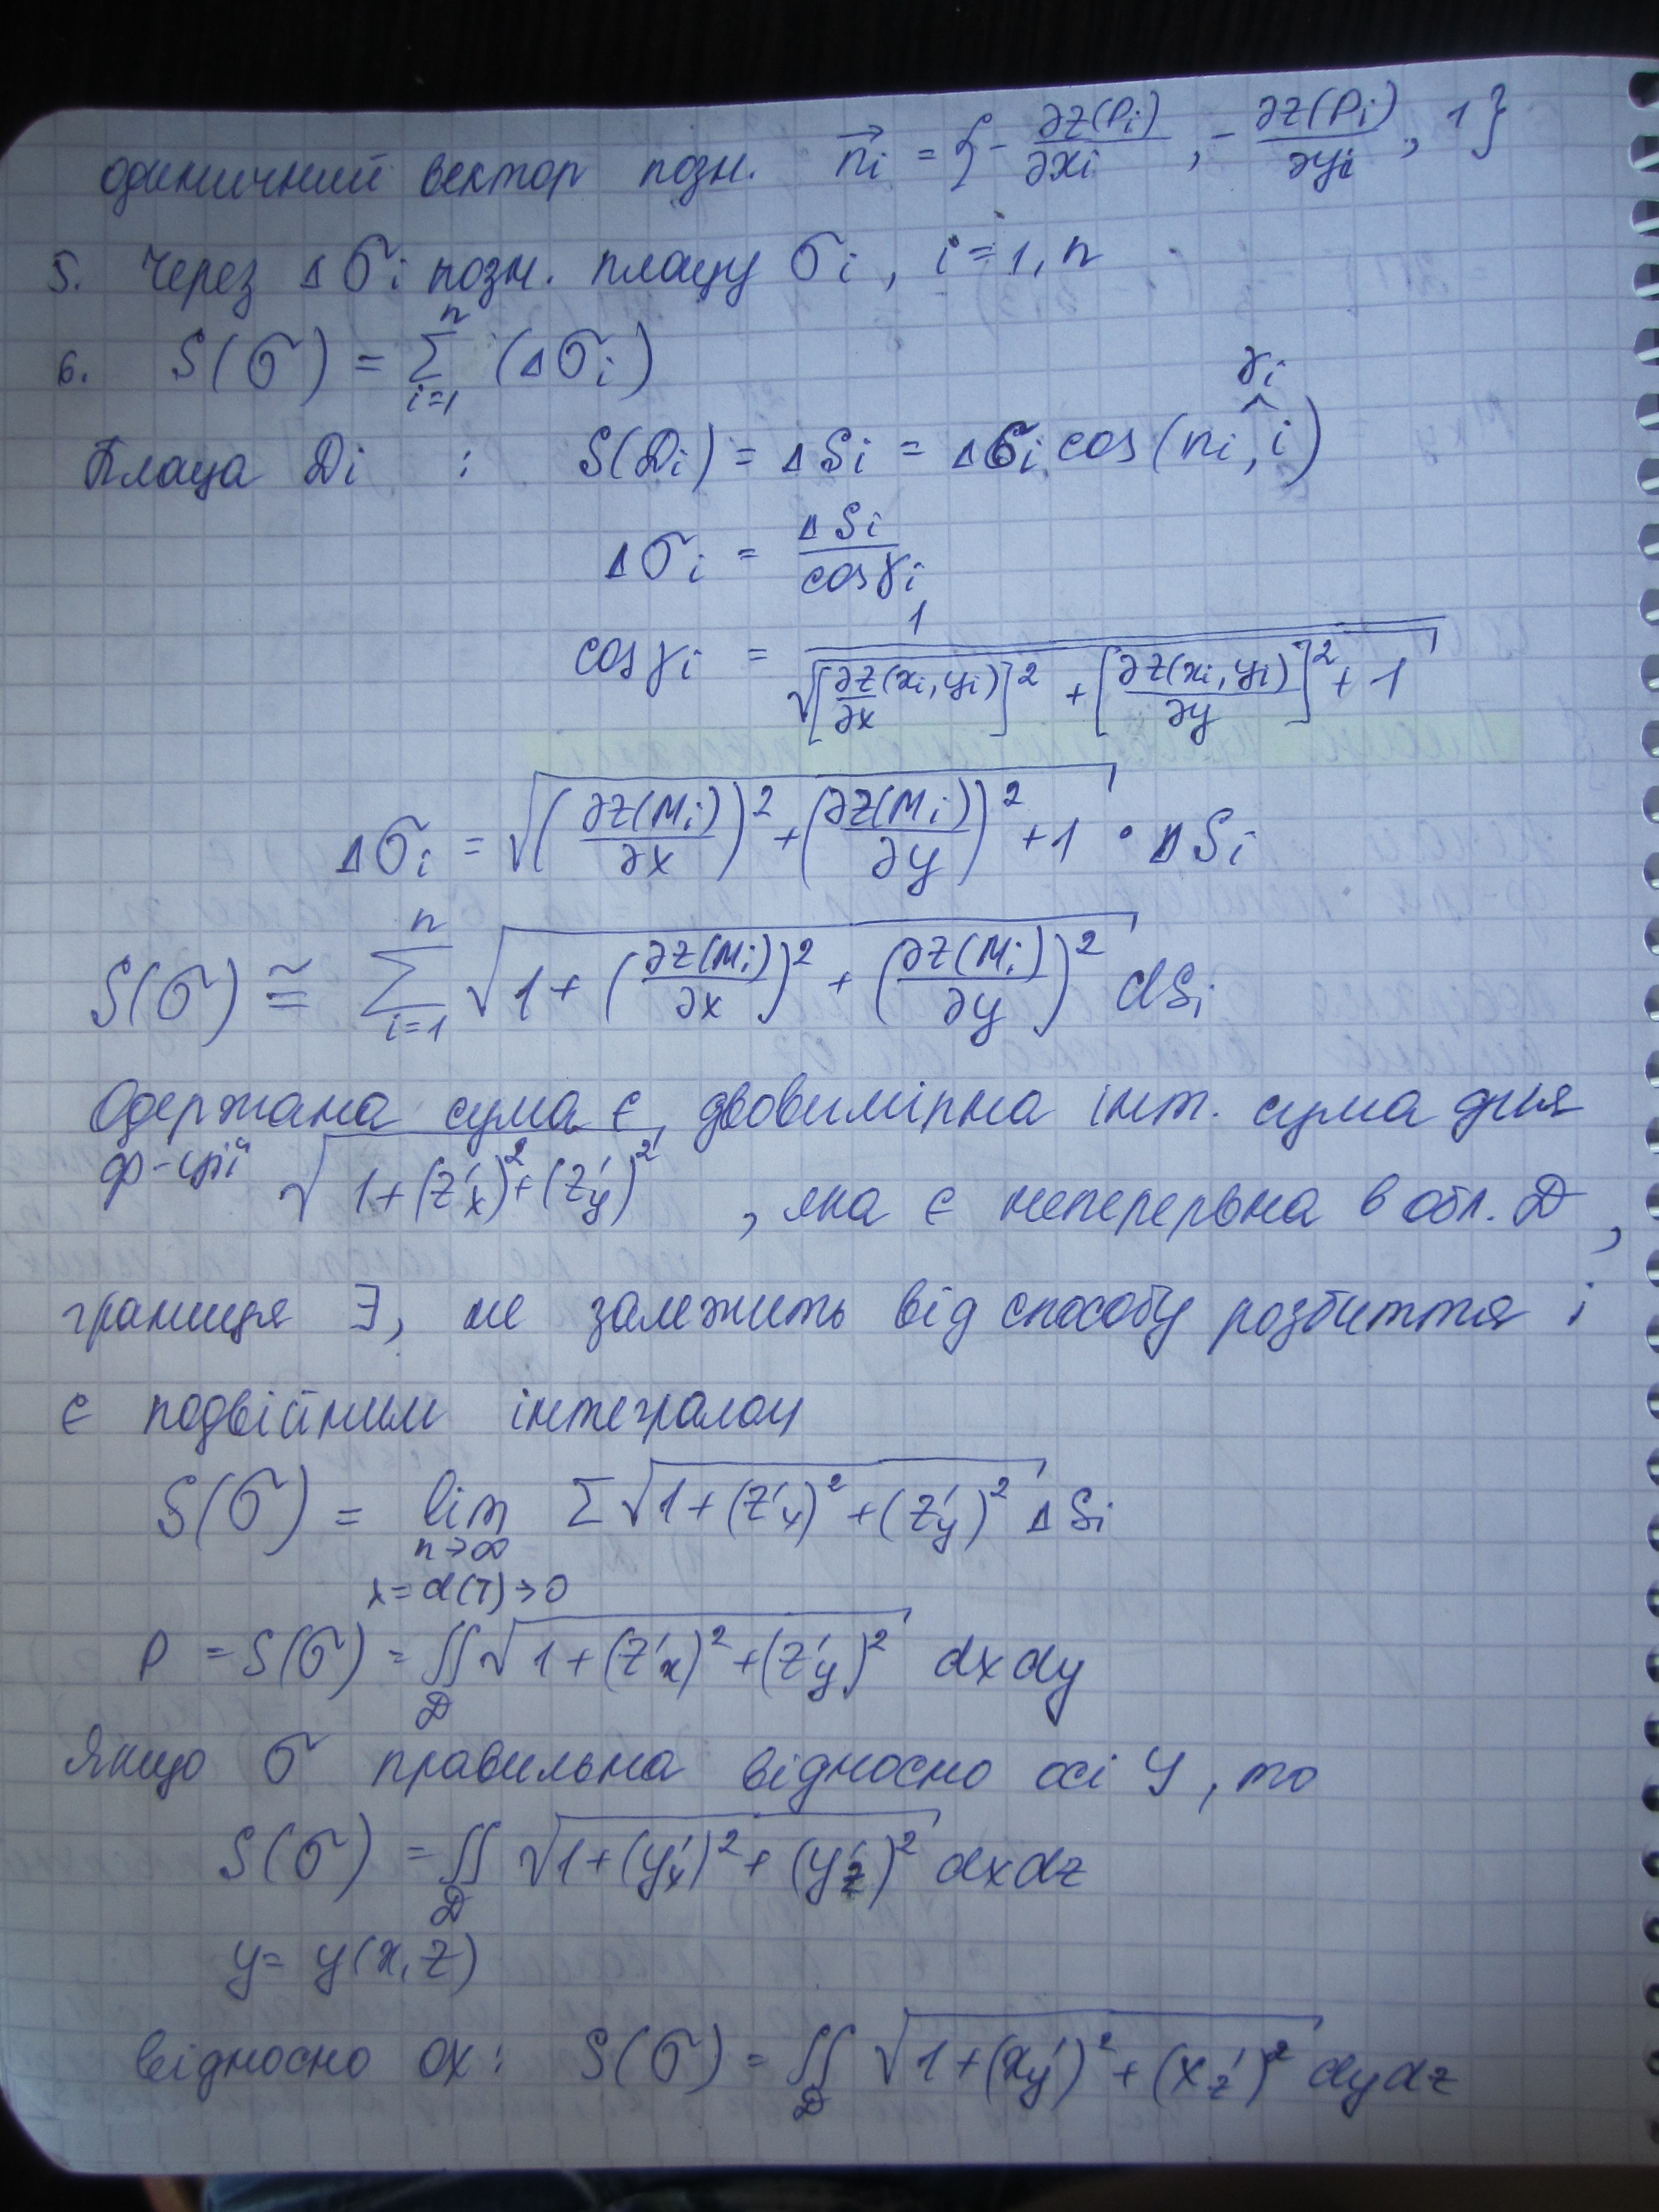 одиничний вектор позн. n⃗i = {- ∂z(Pi)/∂xi , - ∂z(Pi)/∂yi , 1}
5. Через Δσi позн. площу σi , i=1,n
6. S(σ) = Σ_{i=1}^{n} (Δσi)
γi
Площа Di : S(Di) = ΔSi = Δσi cos(ni,^i)
Δσi = ΔSi / cosγi
cosγi = 1 / √([∂z/∂x (xi,yi)]² + [∂z(xi,yi)/∂y]² + 1)
Δσi = √((∂z(Mi)/∂x)² + (∂z(Mi)/∂y)² + 1) · ΔSi
S(σ) ≅ Σ_{i=1}^{n} √(1 + (∂z(Mi)/∂x)² + (∂z(Mi)/∂y)²) dSi
Одержана сума є двовимірна інт. сума для
ф-ції √(1+(z'x)²+(z'y)²) , яка є неперервна в обл. D ,
границя ∃, не залежить від способу розбиття і
є подвійним інтегралом
S(σ) = lim Σ √(1+(z'x)²+(z'y)²) ΔSi
n→∞
λ=d(T)→0
P = S(σ) = ∬_D √(1+(z'x)²+(z'y)²) dxdy
Якщо σ правильна відносно осі Y , то
S(σ) = ∬_D √(1+(y'x)²+(y'z)²) dxdz
y= y(x,z)
відносно ох: S(σ) = ∬_D √(1+(x'y)²+(x'z)²) dydz